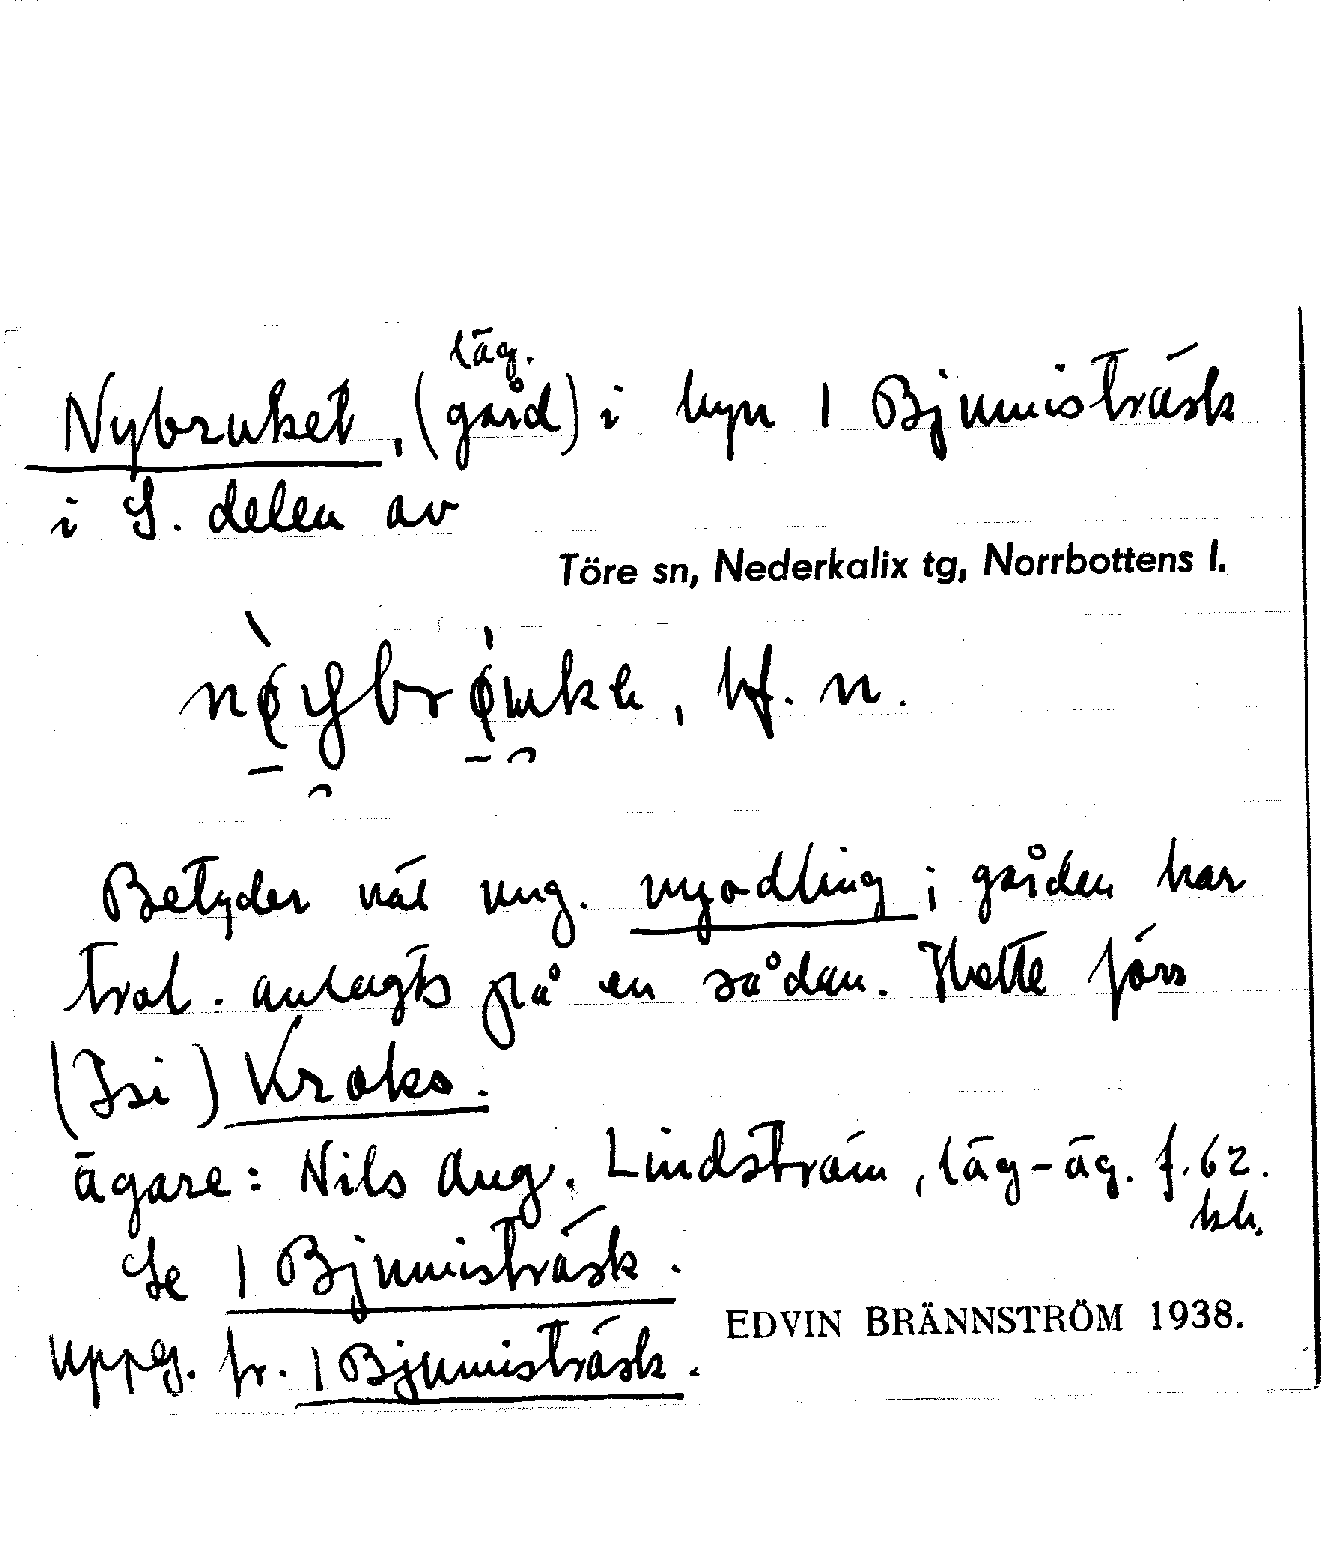 läg.
Nybruket, (gård) i byn 1 Bjumisträsk
i S. delen av
Töre sn, Nederkalix tg, Norrbottens l.
bf. n.
Betyder väl ung. nyodling; gården har
trol. anlagts på en sådan. Hette förr
(Isi) Kroks.
ägare: Nils Aug. Lindström, läg-äg. f. 62.
hh.
Se 1 Bjumisträsk.
Uppg. fr. 1 Bjumisträsk.
EDVIN BRÄNNSTRÖM 1938.